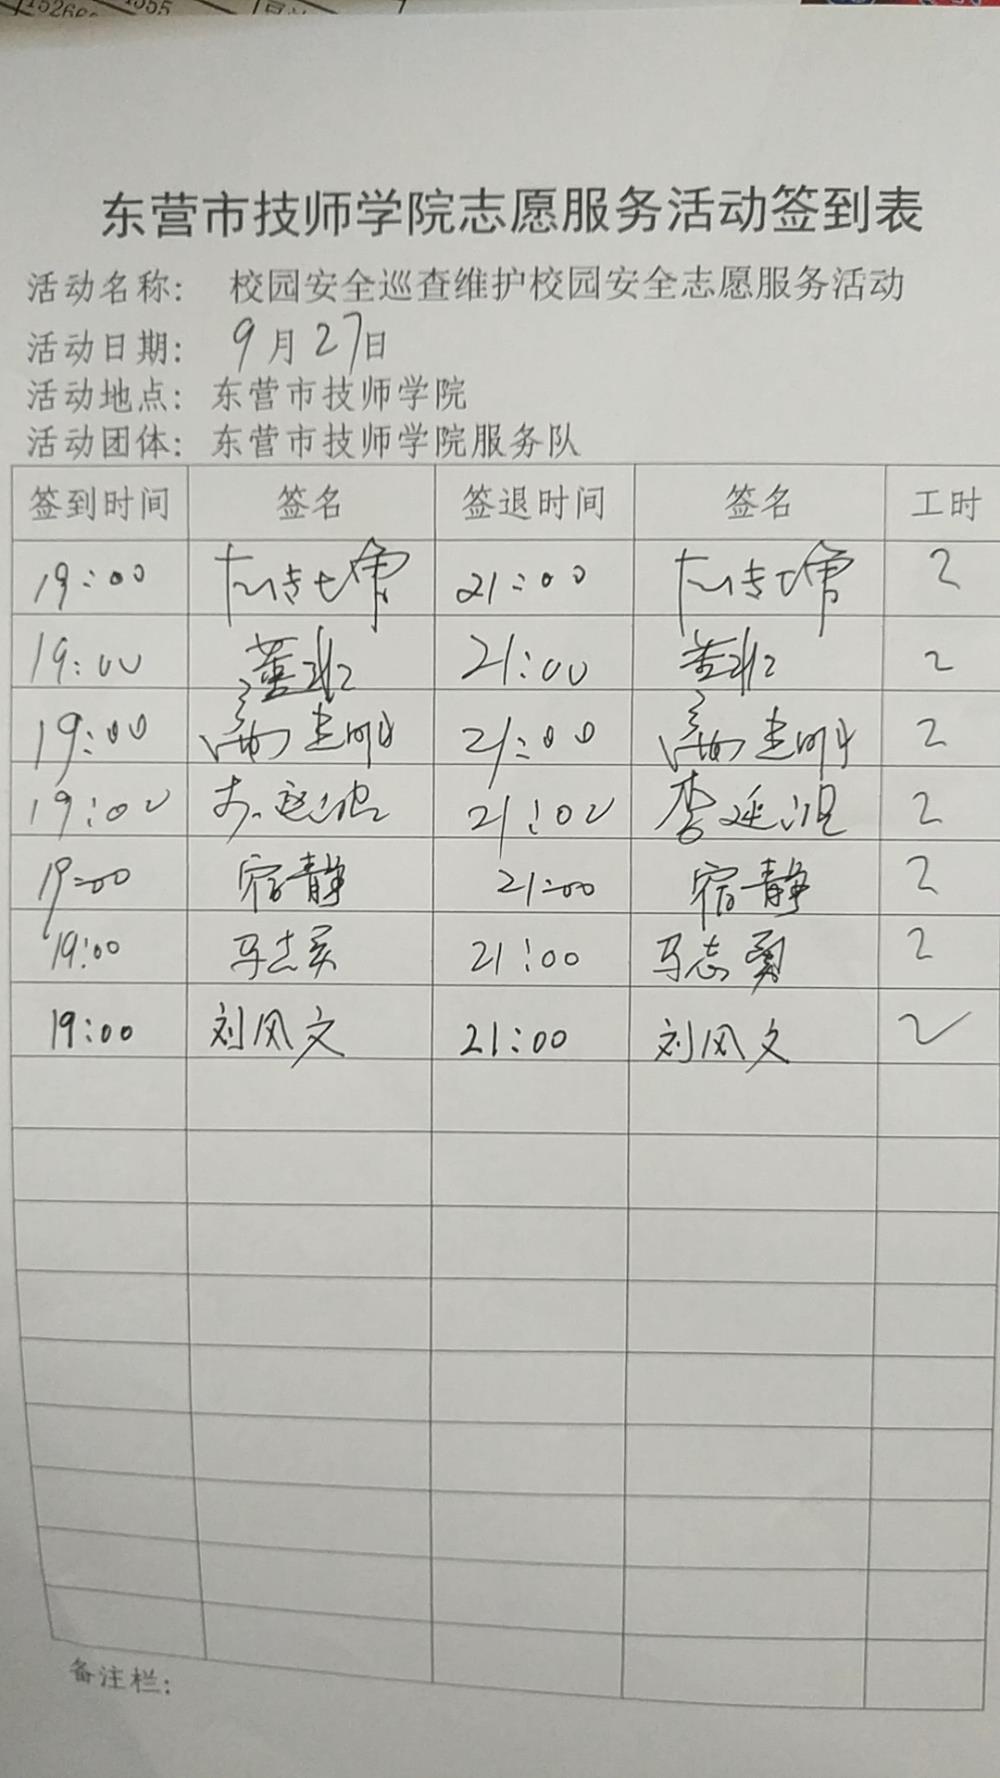 东营市技师学院志愿服务活动签到表
活动名称： 校园安全巡查维护校园安全志愿服务活动
活动日期： 9月27日
活动地点：东营市技师学院
活动团体：东营市技师学院服务队
签到时间 签名 签退时间 签名 工时
19:00 21:00 2
19:00 21:00 2
19:00 21:00 2
19:00 21:00 李延 2
19:00 宿静 21:00 宿静 2
19:00 马志勇 21:00 马志勇 2
19:00 刘风文 21:00 刘风文 2
备注栏：